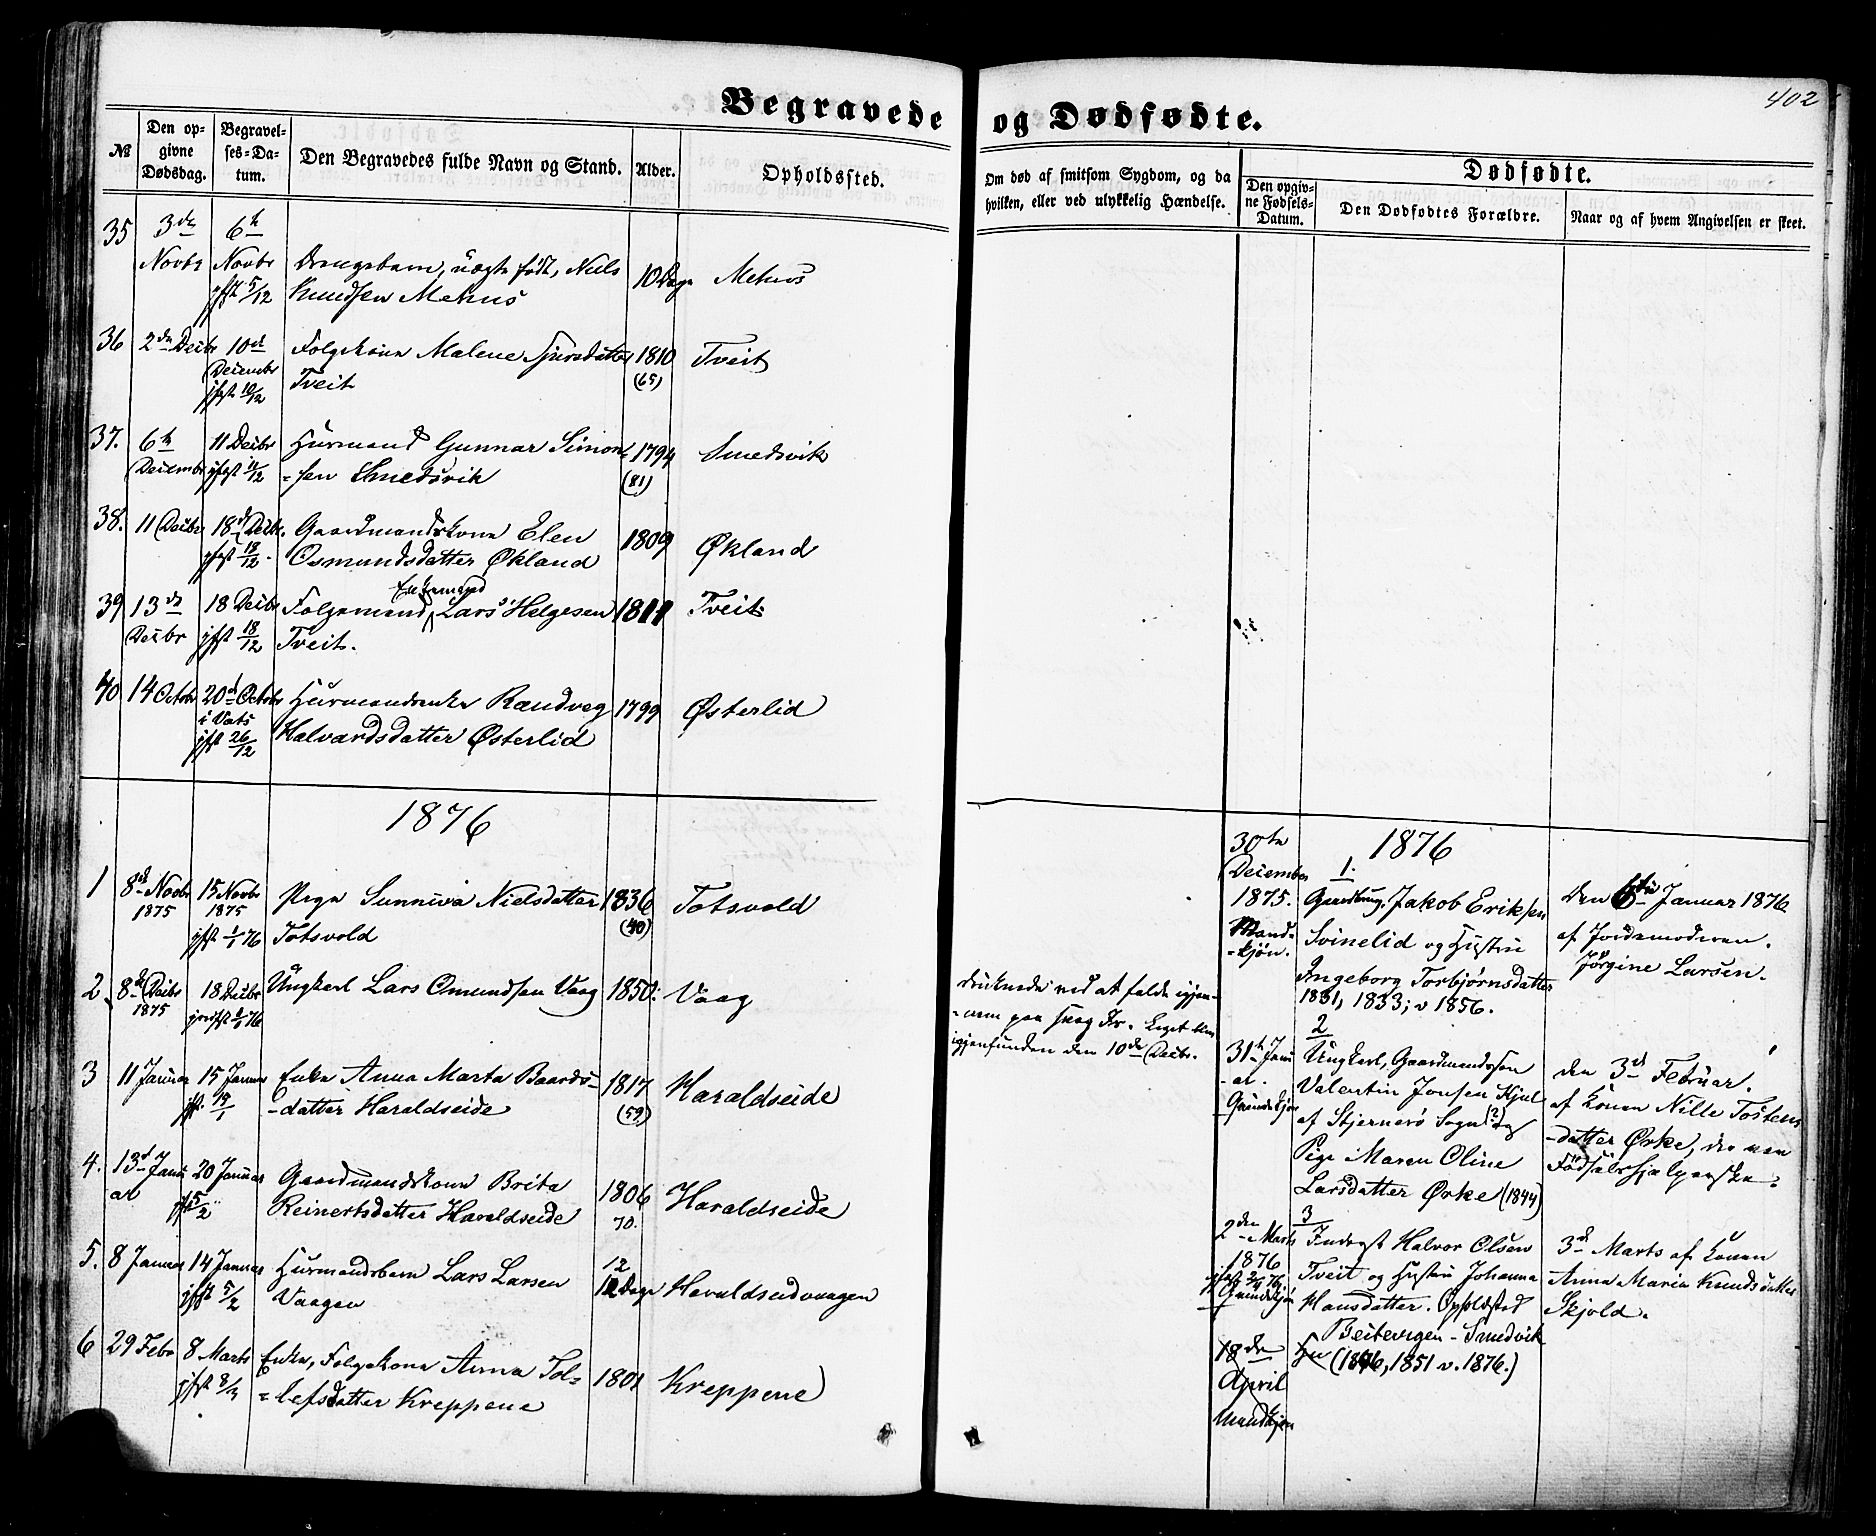 402
Begravede og Dødfødte.
№ Den opgivne Dødsdag. Begravelses-Datum. Den Begravedes fulde Navn og Stand. Alder. Opholdssted.
Om død af smitsom Sygdom, og da hvilken, eller ved ulykkelig Hændelse.
Dødfødte.
Den opgivne Fødsels-Datum. Den Dødfødtes Forældre. Naar og af hvem Angivelsen er skeet.
35 3de 6te
Novbr Novbr Drengebarn, uægte født, Niels 10 Dage Mehus
jfst 5/12 Knudsen Mehus
36 2den Decbr 10de Folgekone Malene Sjursdatter 1810 Tveit
Decembr Tveit (65)
jfst 10/12
37. 6te 11 Decbr Huusmand Gunnar Simon- 1794 Smedsvik
Decembr jfst 11/12 -sen Smedsvik (81)
38. 11 Decbr 18de Decbr. Gaardmandskone Elen 1809 Økland
jfst 18/12. Osmundsdatter Økland
Enkemand
39 13de 18 Decbr Folgemand, Lars Helgesen 1811 Tveit
Decbr jfst 18/12 Tveit.
40 14 Octobr 20de Octobr Huusmandsenke Randveg 1799 Østerlid
i Vats Halvardsdatter Østerlid
jfst 26/12
1876
1 8de Novbr 15 Novbr Pige Sunniva Nielsdatter 1836 Totsvold
1875 1875 Totsvold (40)
jfst 1/1 76
2 8de Decbr 18 Decbr Ungkarl Lars Omundsen Vaag 1850. Vaag
1875 jordfst 1/1 76
druknede ved at falde igjen-
-nem paa Liget blev
igjenfunden den 10de Decbr.
3 11 Januar 15 Januar Enke Anna Marta Baards- 1817 Haraldseide
jfst. 15/1 -datter Haraldseide (59)
4. 13de Janu 20 Januar Gaardmandskone Brita 1806 Haraldseide
ar jfst 5/2 Reinertsdatter Haraldseide 70.
5. 8 Januar 14 Januar Huusmandsbarn Lars Larsen 12 Haraldseidvaagen
jfst 5/2 Vaagen 12 Dage
6 29 Febr 8 Marts Enke, Folgekone Anna Tol= 1801 Kreppene
jfst 8/3 =lefsdatter Kreppene
30te 1876
December 1.
1875. Gaardbrug. Jakob Eriksen Den 6te Januar 1876
Mand- Svinelid og Hustru af Jordemoderen
-kjøn. Ingeborg Torbjørnsdatter Jørgine Larsen.
1831, 1833; v 1856.
2
31te Janu Ungkarl, Gaardmandssøn den 3de Februar.
-ar. Valentin Jonsen Kjul af Konen Nille Tostens
Qvindekjøn af Stjernerø Sogn (?) og -datter Ørke, der var
Pige Maren Oline Fødselshjælperske.
Larsdatter Ørke (1844)
3
2den Marts Inderst Halvor Olsen 3de Marts af Konen
1876 Tveit og Hustru Johanna Anna Maria Knudsdatter
Qvindekjøn Hansdatter. Opholdssted Skjold.
Beitevigen - Smedvik
18de (1846, 1851 v. 1876.)
April
Mandkjøn